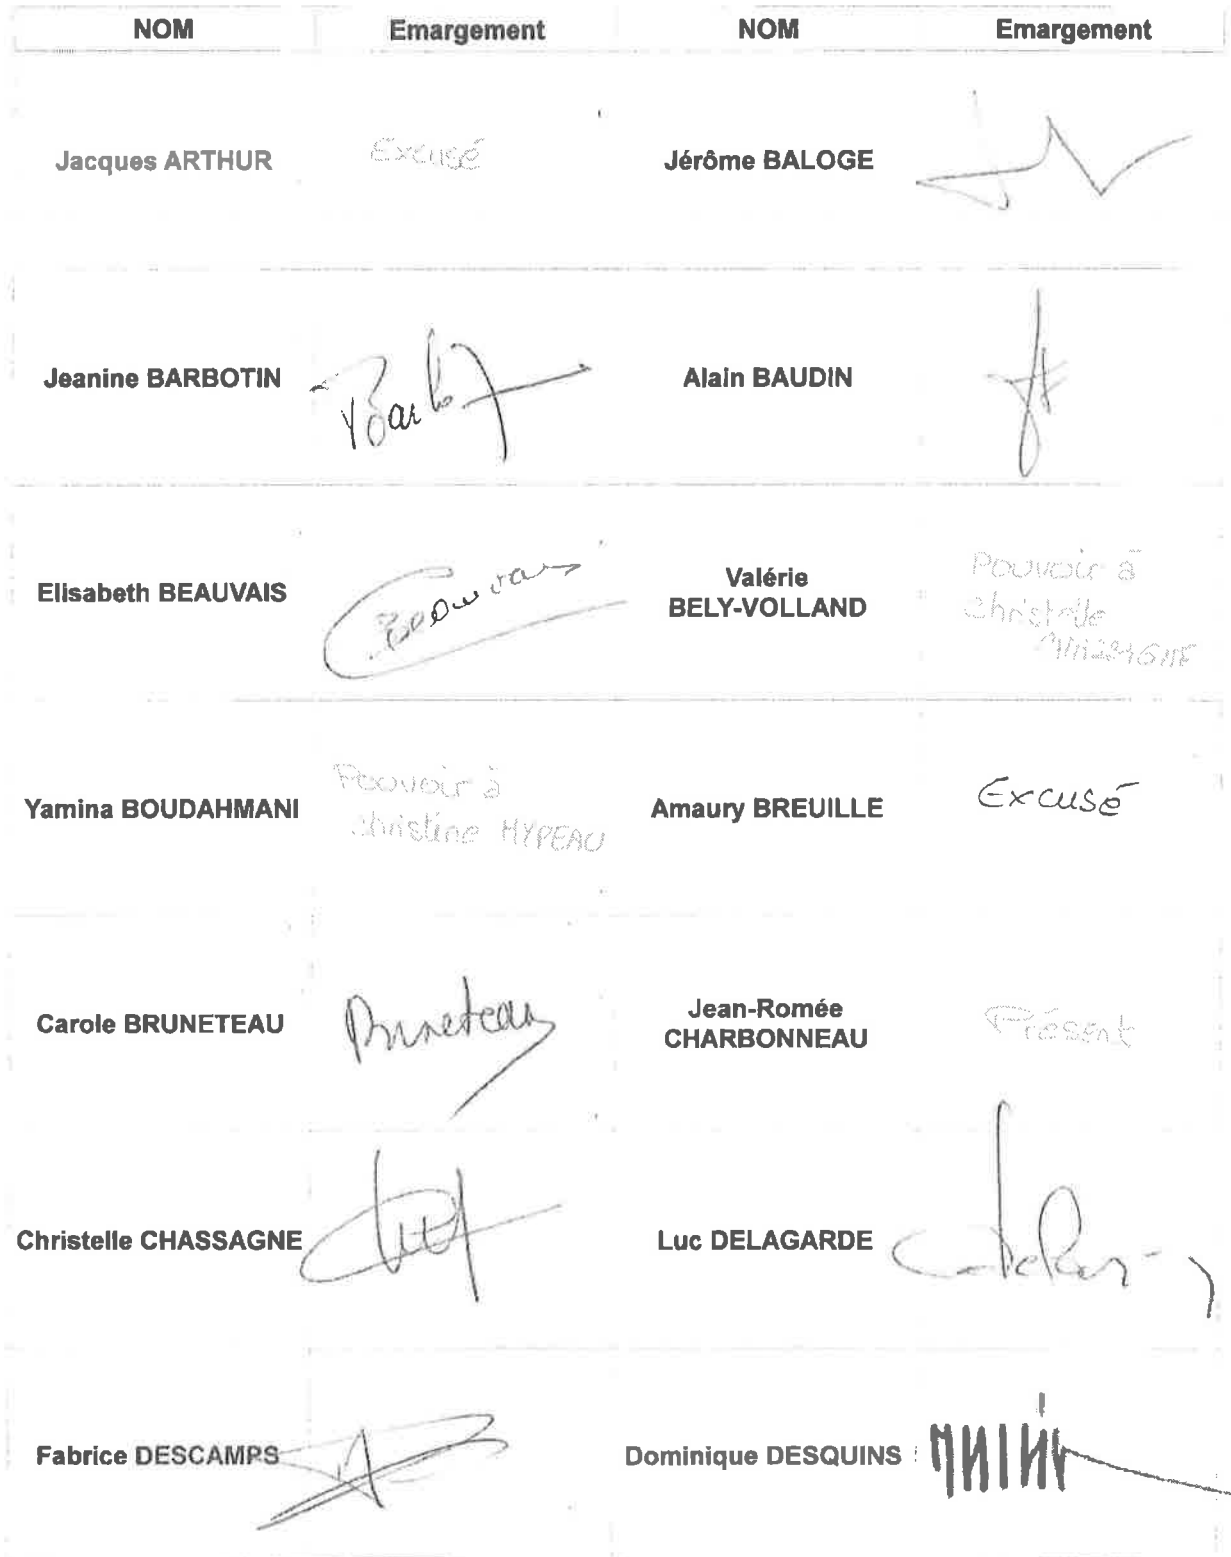 NOM Emargement NOM Emargement
Jacques ARTHUR Excusé Jérôme BALOGE
Jeanine BARBOTIN Barb Alain BAUDIN
Elisabeth BEAUVAIS Beauvais Valérie
BELY-VOLLAND
Pouvoir à
Christelle
Yamina BOUDAHMANI Pouvoir à
Christine HYPEAU
Amaury BREUILLE Excusé
Carole BRUNETEAU Bruneteau Jean-Romée
CHARBONNEAU
Présent
Christelle CHASSAGNE Luc DELAGARDE
Fabrice DESCAMPS Dominique DESQUINS